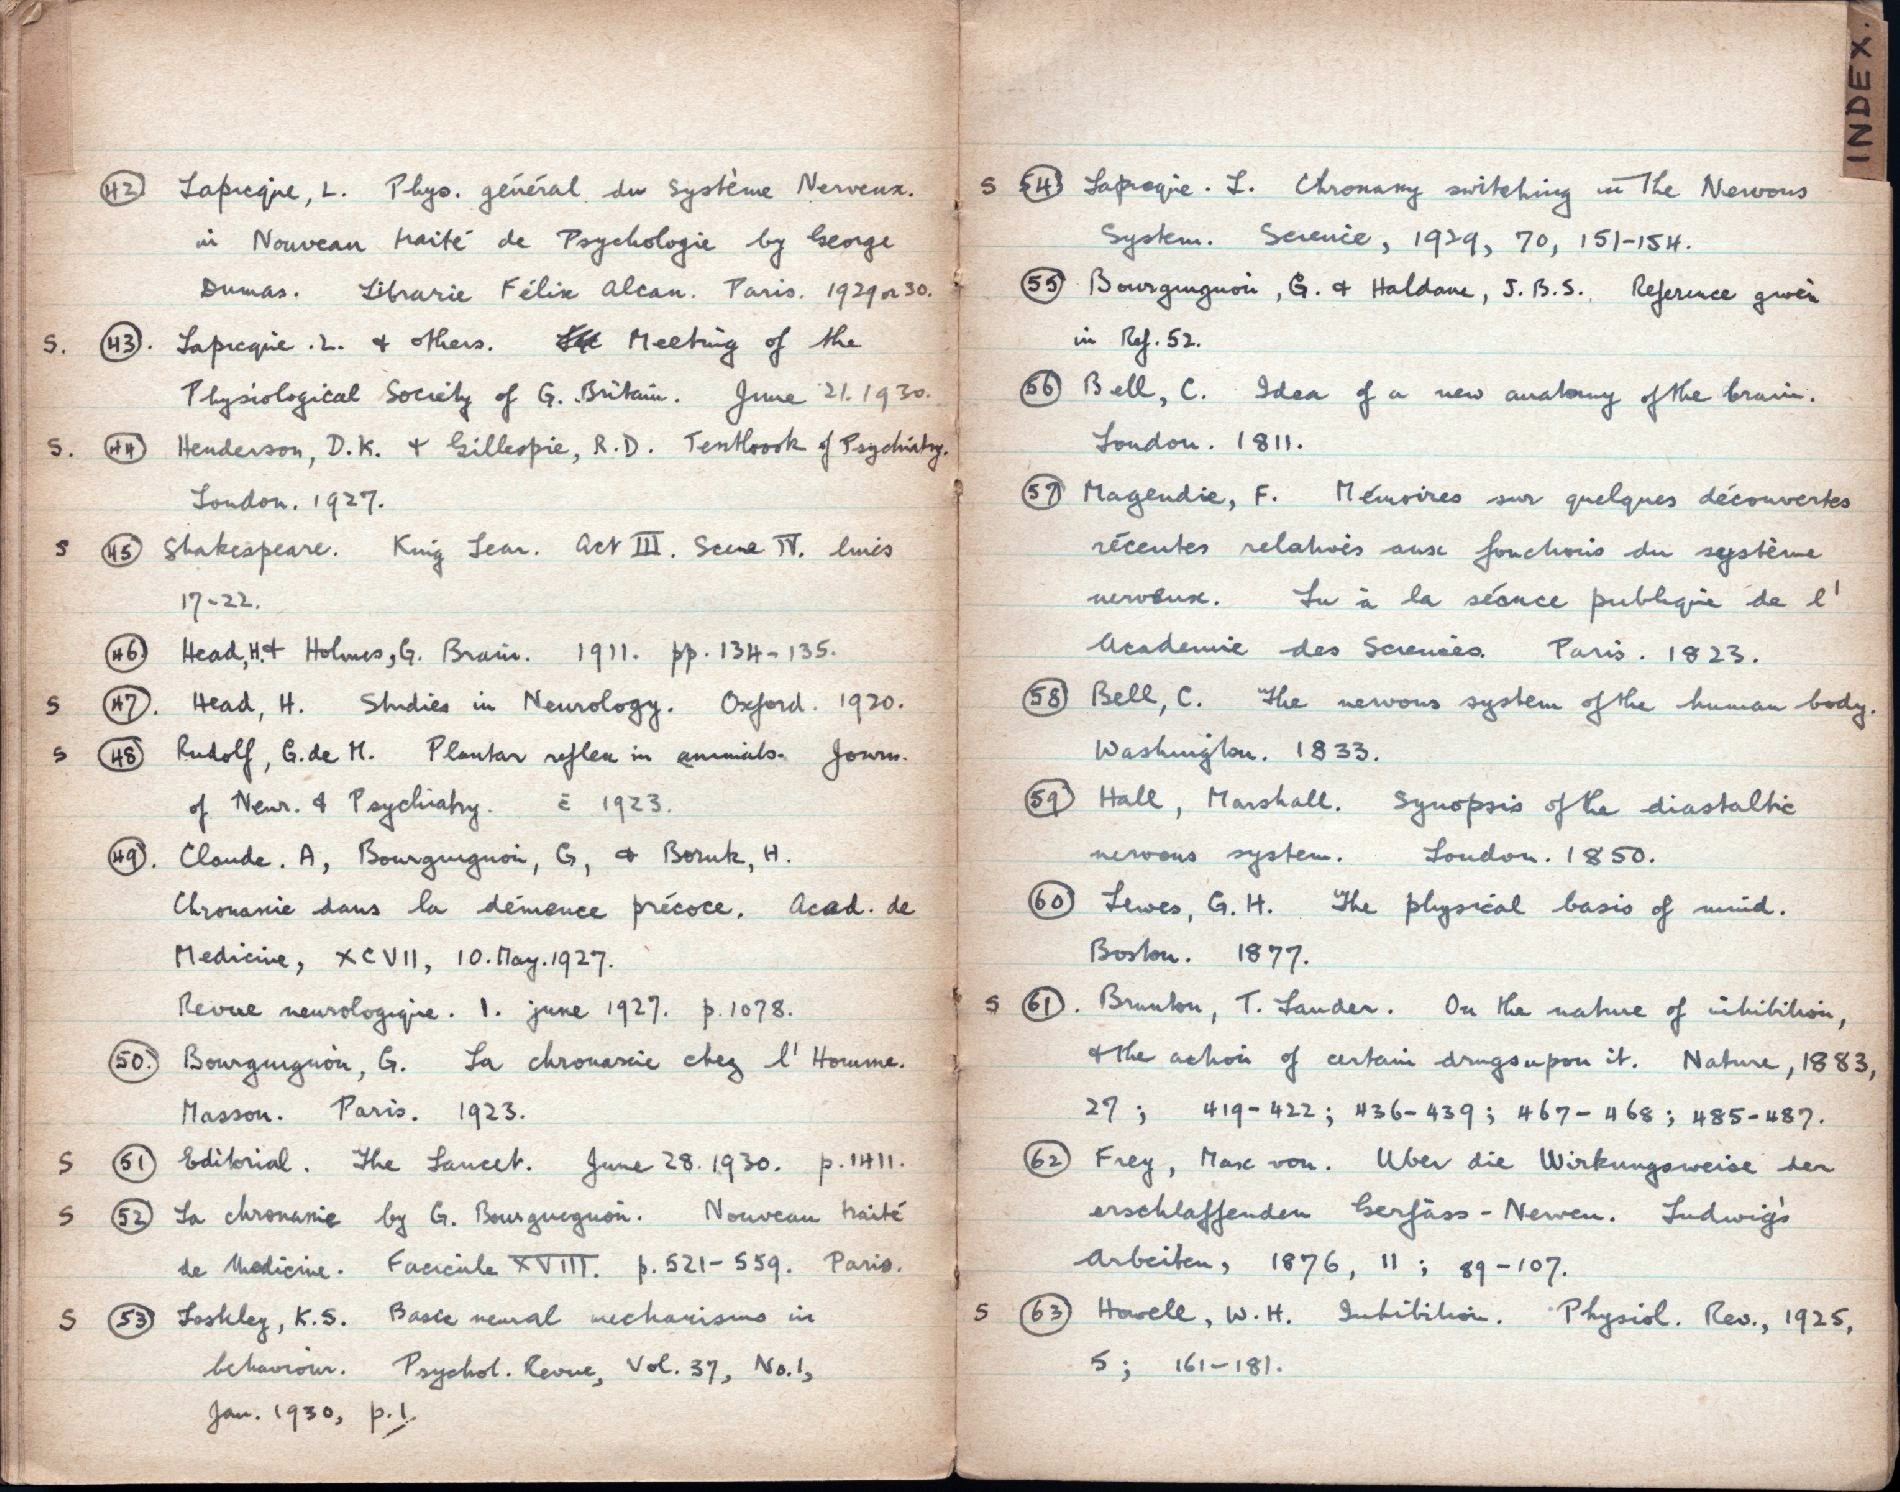 42 Lapicque, L. Phys. général du Système Nerveux.
in Nouveau traité de Psychologie by George
Dumas. Librarie Félix Alcan. Paris. 1929 or 30.
S. 43. Lapicque. L. & others. Meeting of the
Physiological Society of G. Britain. June 21. 1930.
S. 44 Henderson, D.K. & Gillespie, R.D. Textboook of Psychiatry.
London. 1927.
S 45 Shakespeare. King Lear. Act III. Scene IV. lines
17-22.
46 Head, H. & Holmes, G. Brain. 1911. pp. 134-135.
S 47. Head, H. Studies in Neurology. Oxford. 1920.
S 48 Rudolf, G. de M. Plantar reflex in animals. Journ.
of Neur. & Psychiatry. 1923.
49. Claude. A, Bourguignon, G, & Boruk, H.
Chronaxie dans la démence précoce. Acad. de
Medicine, XCVII, 10. May. 1927.
Revue neurologique. 1. june 1927. p. 1078.
50. Bourguignon, G. La chronaxie chez l' Homme.
Masson. Paris. 1923.
S 51 Editorial. The Lancet. June 28. 1930. p. 1411.
S 52 La chronaxie by G. Bourguegnon. Nouveau traité
de Medicine. Facicule XVIII. p. 521-559. Paris.
S 53 Lashley, K.S. Basic neural mechanisms in
behaviour. Psychol. Revue, Vol. 37, No. 1,
Jan. 1930, p. 1
INDEX.
S 54 Lapicque. L. Chronaxy switching in the Nervous
System. Science, 1929, 70, 151-154.
55 Bourguignon, G. & Haldane, J.B.S. Reference given
in Ref. 52.
56 Bell, C. Idea of a new anatomy of the brain.
London. 1811.
57 Magendie, F. Mémoires sur quelques découvertes
récentes relatives aux fonctions du système
nerveux. Lu à la séance publique de l'
Academie des Sciences. Paris. 1823.
58 Bell, C. The nervous system of the human body.
Washington. 1833.
59 Hall, Marshall. Synopsis of the diastaltic
nervous system. London. 1850.
60 Lewes, G.H. The physical basis of mind.
Boston. 1877.
S 61. Brunton, T. Lauder. On the nature of inhibition,
& the action of certain drugs upon it. Nature, 1883,
27; 419-422; 436-439; 467-468; 485-487.
62 Frey, Max von. Uber die Wirkungsweise der
erschlaffenden Gerfäss-Nerven. Ludwig's
Arbeiten, 1876, 11; 89-107.
S 63 Howell, W.H. Inhibition. Physiol. Rev., 1925,
5; 161-181.